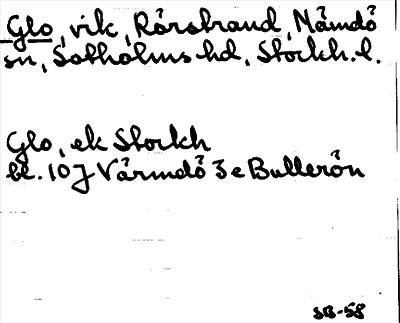 Glo, vik, Rörstrand, Nämdö
sn, Sotholms hd, Stockh. l.
Glo, ek Stockh
bl. 10J Värmdö 3e Bullerön
SB-58